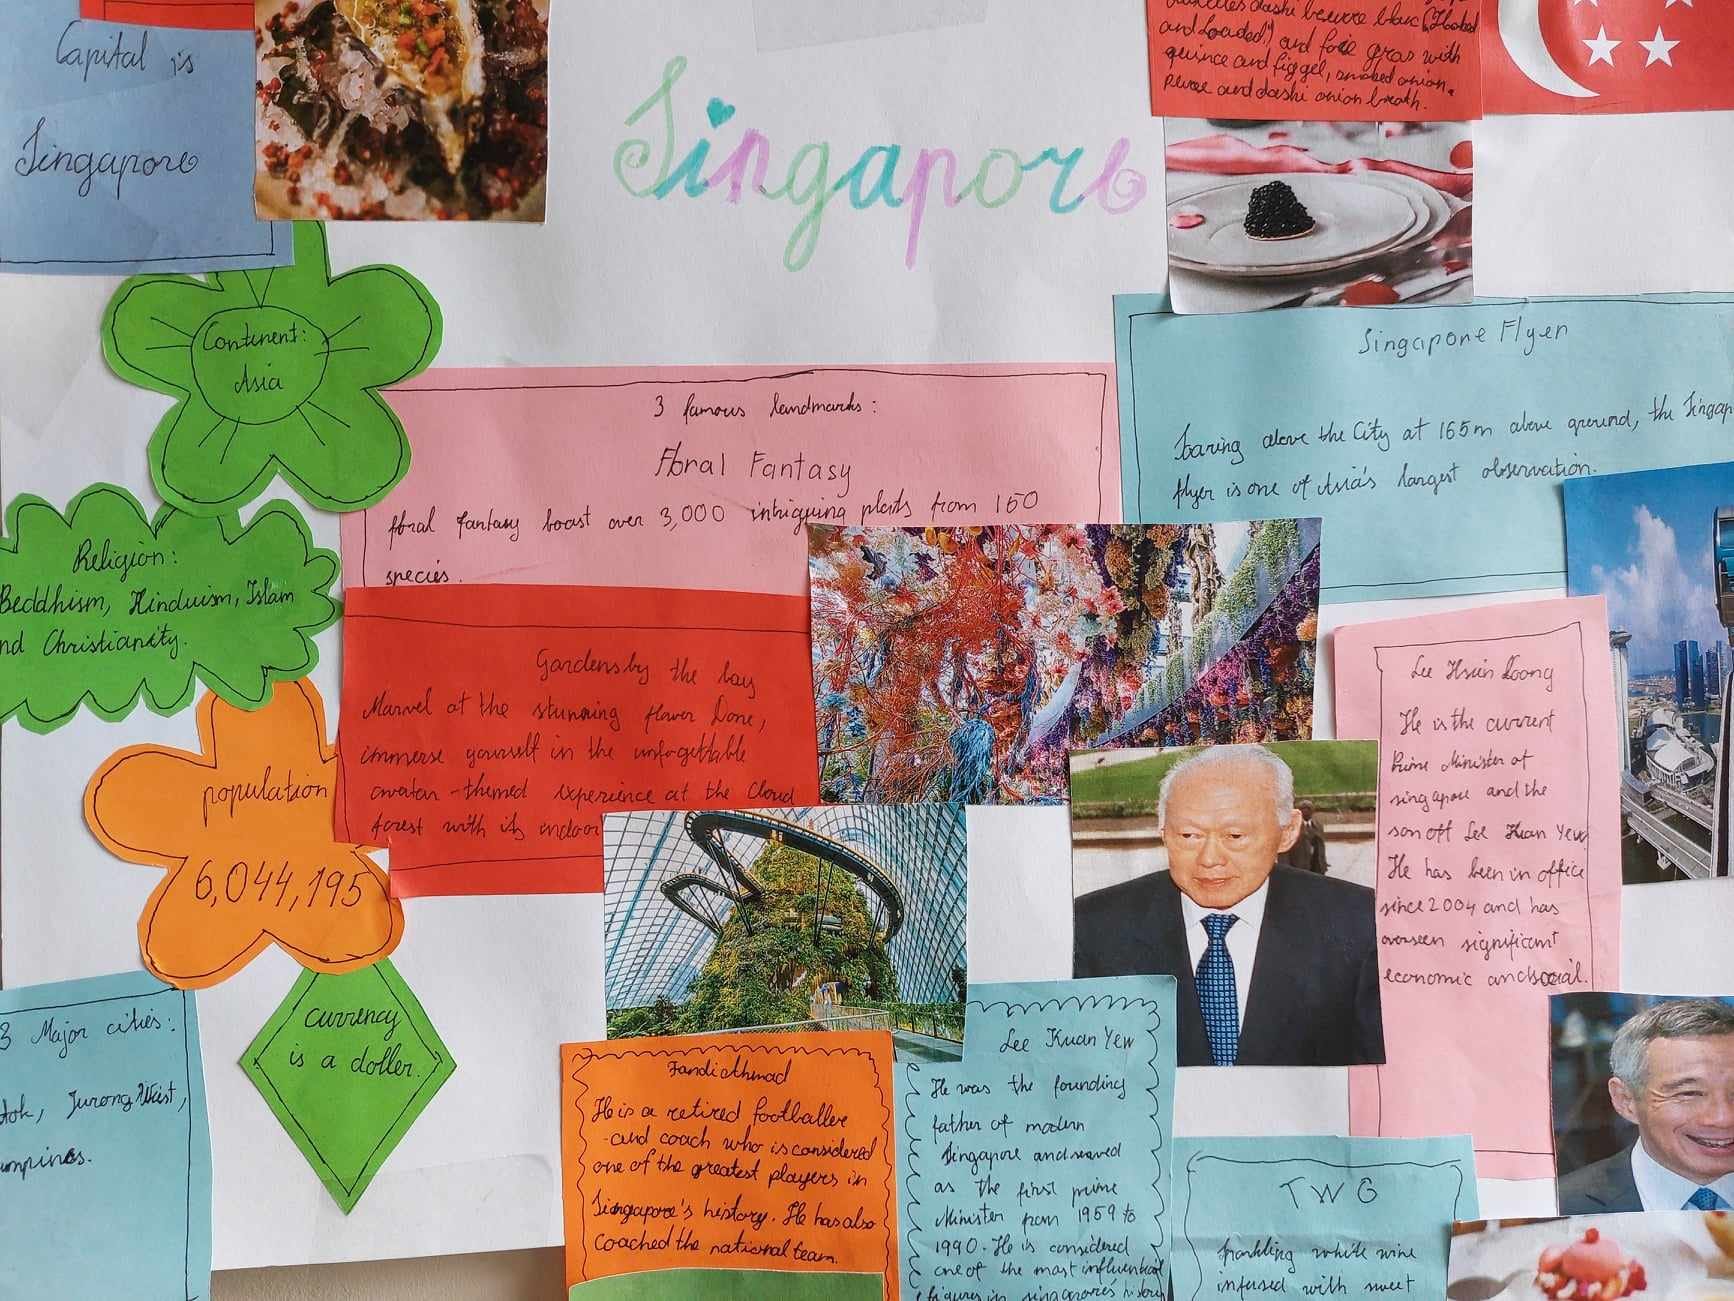 Capital is
Singapore
Singapore
dashi beurre blanc (Hooked
and Loaded!) and foie gras with
quince and fig gel, smoked onion,
puree and dashi onion broath.
Continent:
Asia
Religion:
Beddhism, Hinduism, Islam
nd Christianity.
population
6,044,195
currency
is a doller.
3 Major cities:
dok, Jurong West,
mpines.
3 famous landmarks:
Floral Fantasy
floral fantasy boast over 3,000 intriguing plants from 150
species.
Gardens by the bay
Marvel at the stunning flower Done,
immerse yourself in the unfogettable
avatar-themed experience at the Cloud
forest with its indoor
Singapore Flyer
Soaring above the City at 165m above ground, the Singap
flyer is one of Asia's largest observation.
Lee Hsien Loong
He is the current
Prime Minister of
singapore and the
son off Lee Kuan Yew
He has been in office
since 2004 and has
overseen significant
economic and social.
Fandi Ahmad
He is a retired footballer
and coach who is considered
one of the greatest players in
Singapore's history. He has also
coached the national team.
Lee Kuan Yew
He was the founding
father of modern
Singapore and served
as the first prime
Minister from 1959 to
1990. He is considered
one of the most influential
figures in singapore's history
TWG
Sparkling white wine
infused with sweet